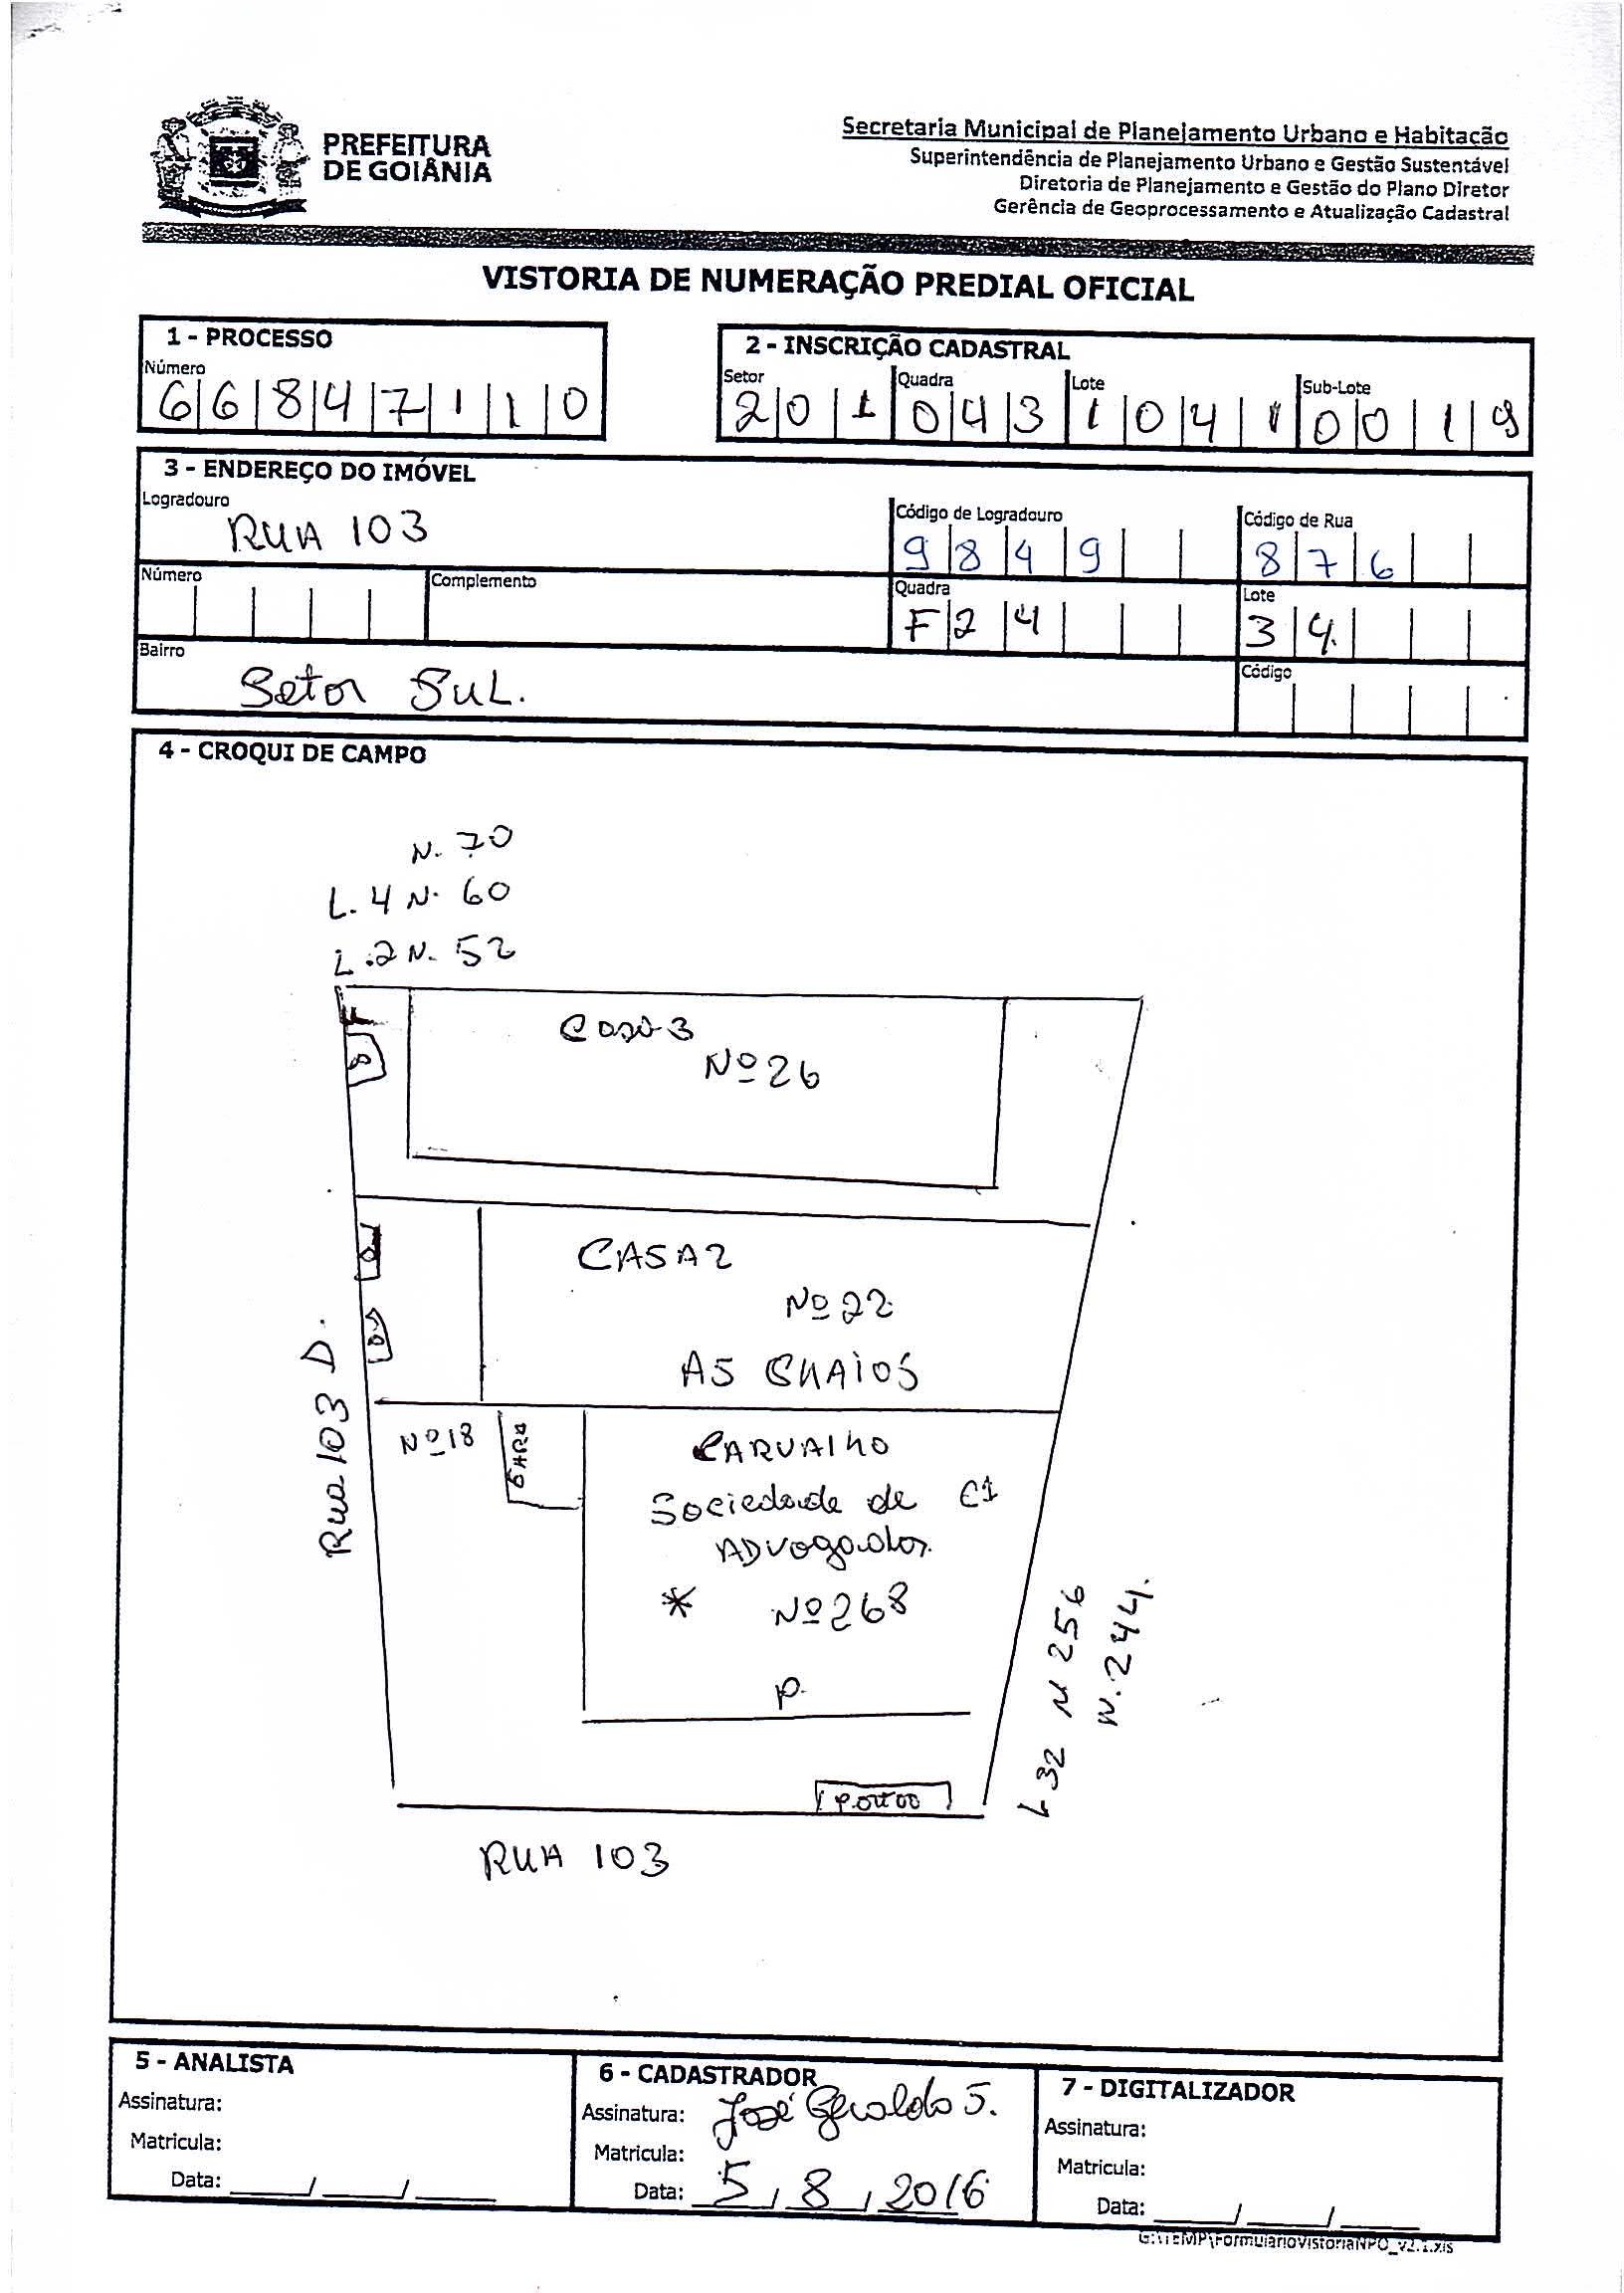 PREFEITURA
DE GOIÂNIA
Secretaria Municipal de Planejamento Urbano e Habitação
Superintendência de Planejamento Urbano e Gestão Sustentável
Diretoria de Planejamento e Gestão do Plano Diretor
Gerência de Geoprocessamento e Atualização Cadastral
VISTORIA DE NUMERAÇÃO PREDIAL OFICIAL
1 - PROCESSO
Número
66847110
2 - INSCRIÇÃO CADASTRAL
Setor Quadra Lote Sub-Lote
201 043 1041 0019
3 - ENDEREÇO DO IMÓVEL
Logradouro
RUA 103
Código de Logradouro
9849
Código de Rua
876
Número
Complemento
Quadra
F24
Lote
34.
Bairro
Setor SUL.
Código
4 - CROQUI DE CAMPO
N. 70
L. 4 N. 60
L. 2 N. 52
Casa 3
Nº 26
CASA 2
Nº 22
Rua 103 D.
Nº 18
GARA
CARVALHO
Sociedade de C1
ADVogados.
* Nº 268
P.
L. 32 N 256
N. 244.
Portão
RUA 103
5 - ANALISTA
Assinatura:
Matricula:
Data: ____/____/____
6 - CADASTRADOR
Assinatura: José Geraldo S.
Matricula:
Data: 5 / 8 / 2016
7 - DIGITALIZADOR
Assinatura:
Matricula:
Data: ____/____/____
G:\TEMP\FormularioVistoriaNPO_v2.1.xls